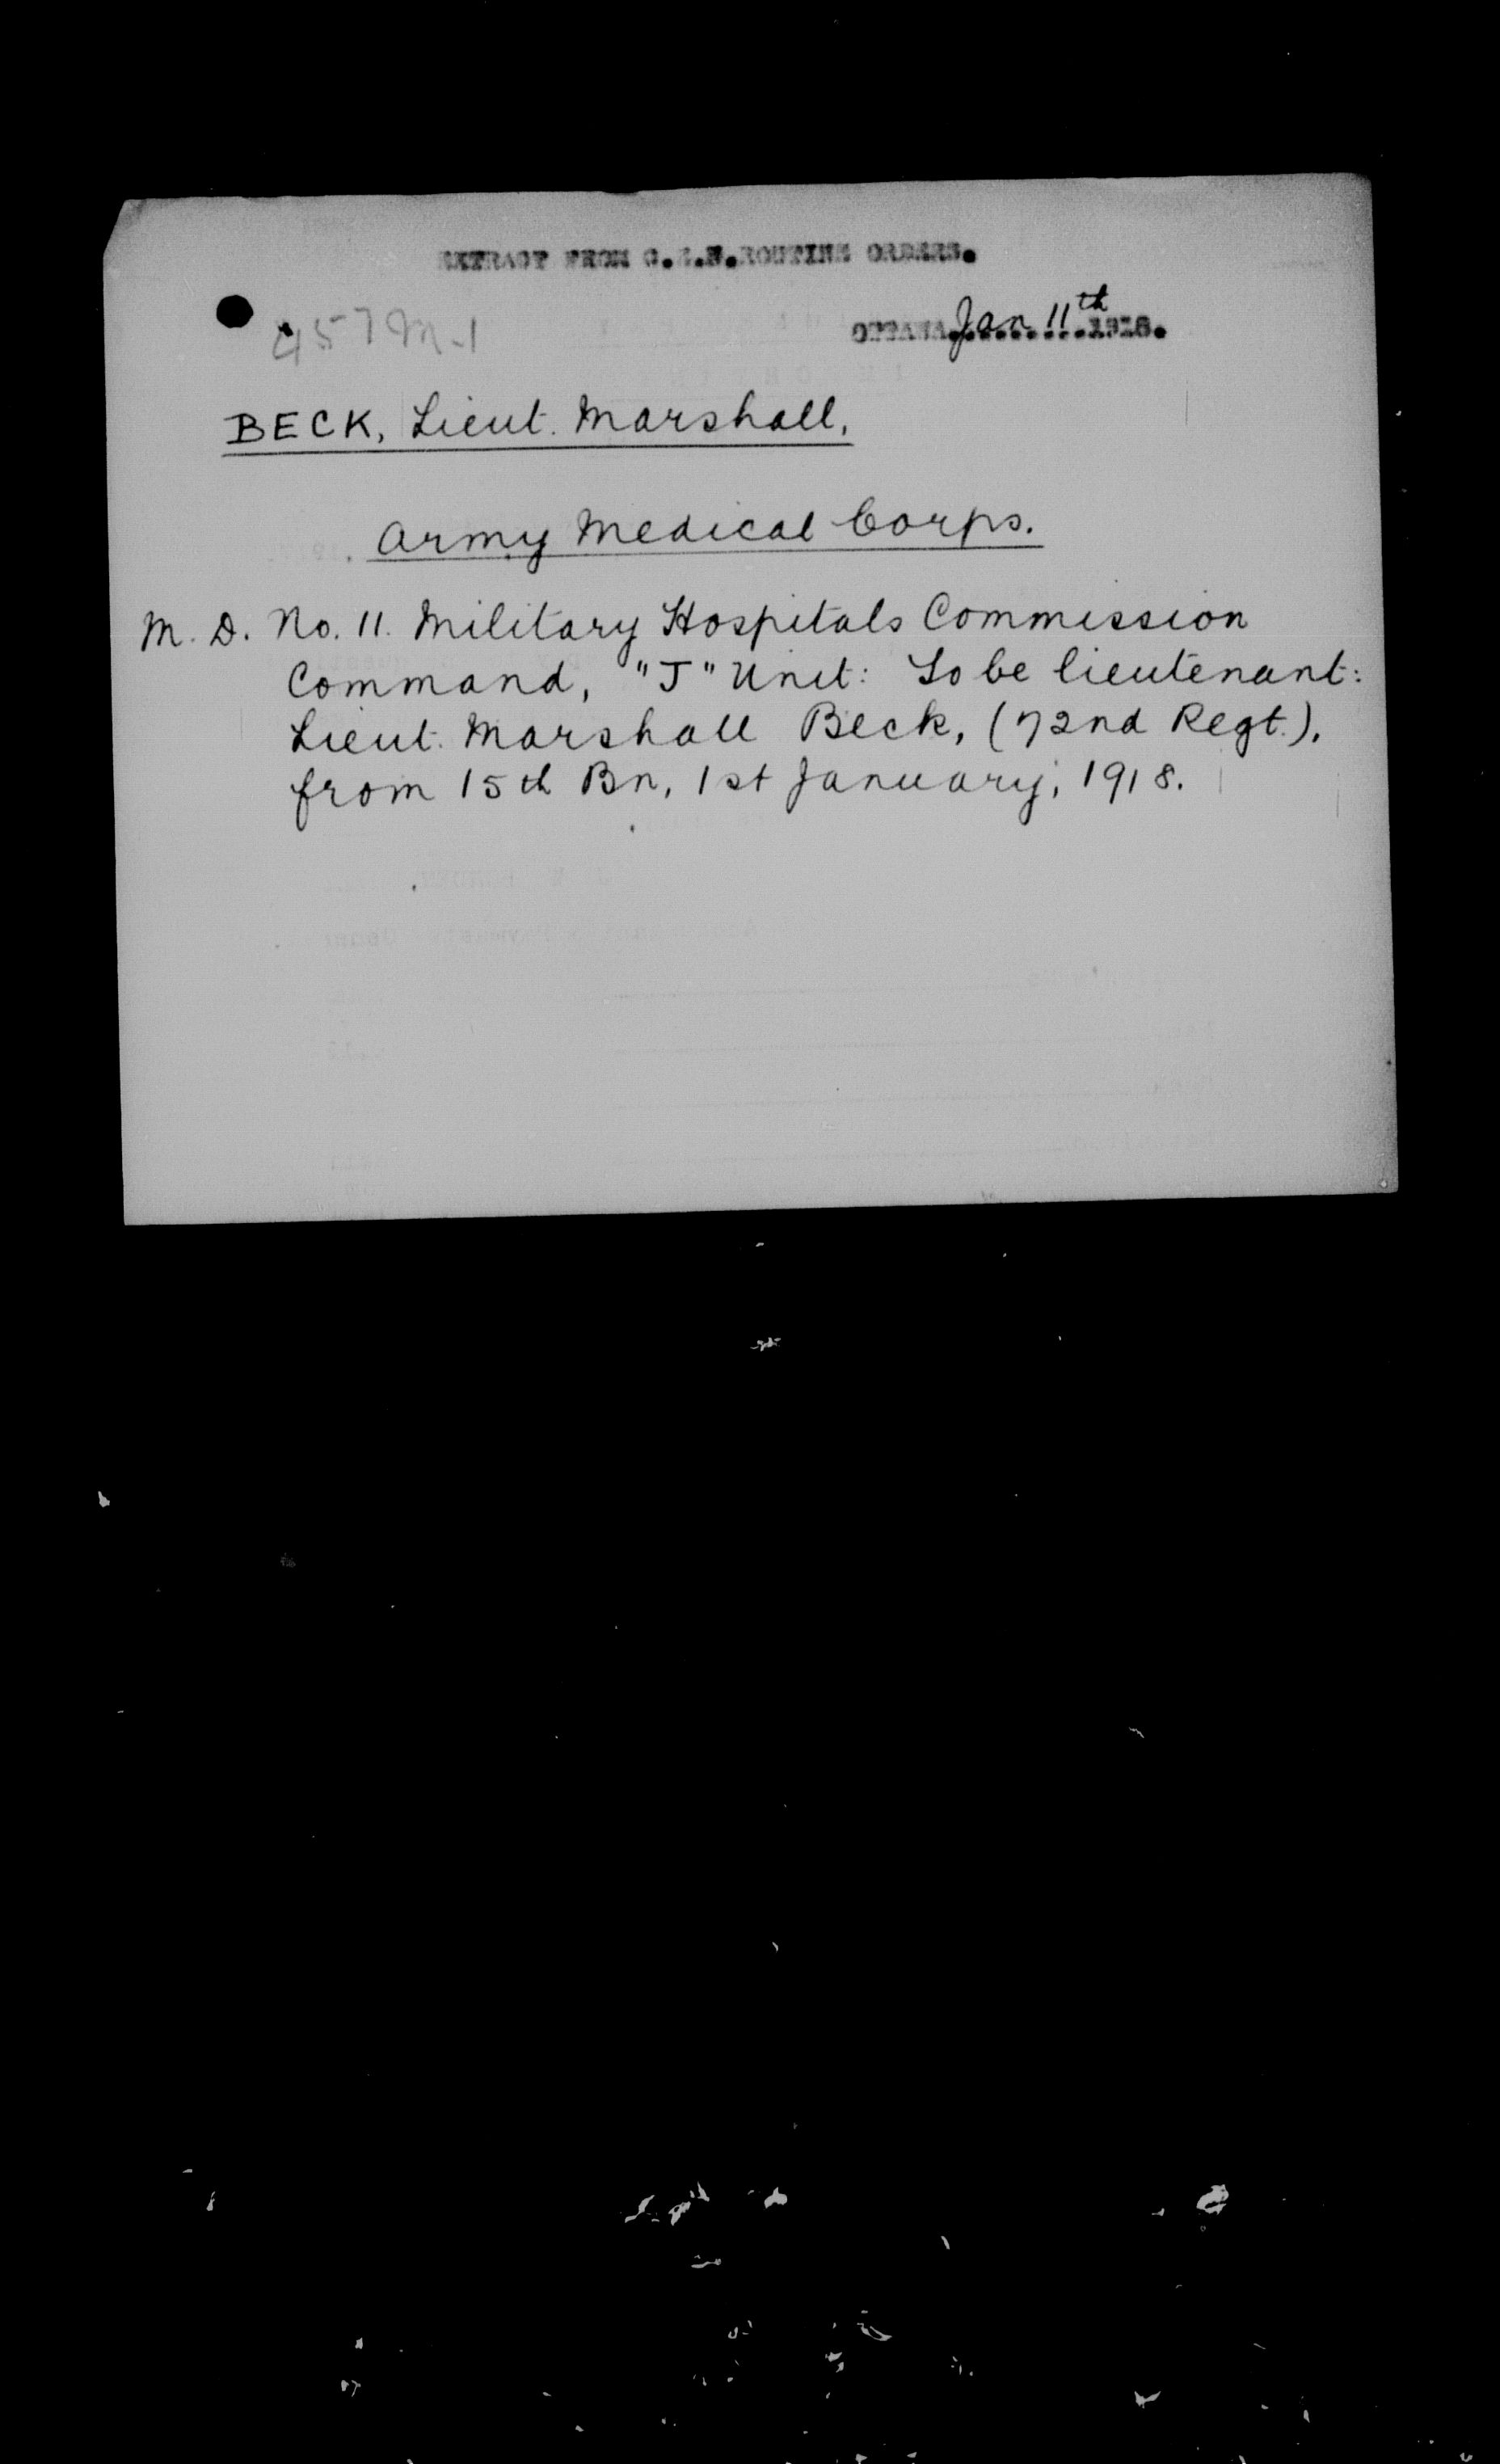 EXTRACT FROM C.E.F. ROUTINE ORDERS.
457 M-1
OTTAWA, Jan 11th 1918.
BECK, Lieut. Marshall,
Army Medical Corps.
M. D. No. 11. Military Hospitals Commission
Command, "J" Unit: To be lieutenant:
Lieut. Marshall Beck, (72nd Regt.),
from 15th Bn, 1st January, 1918.